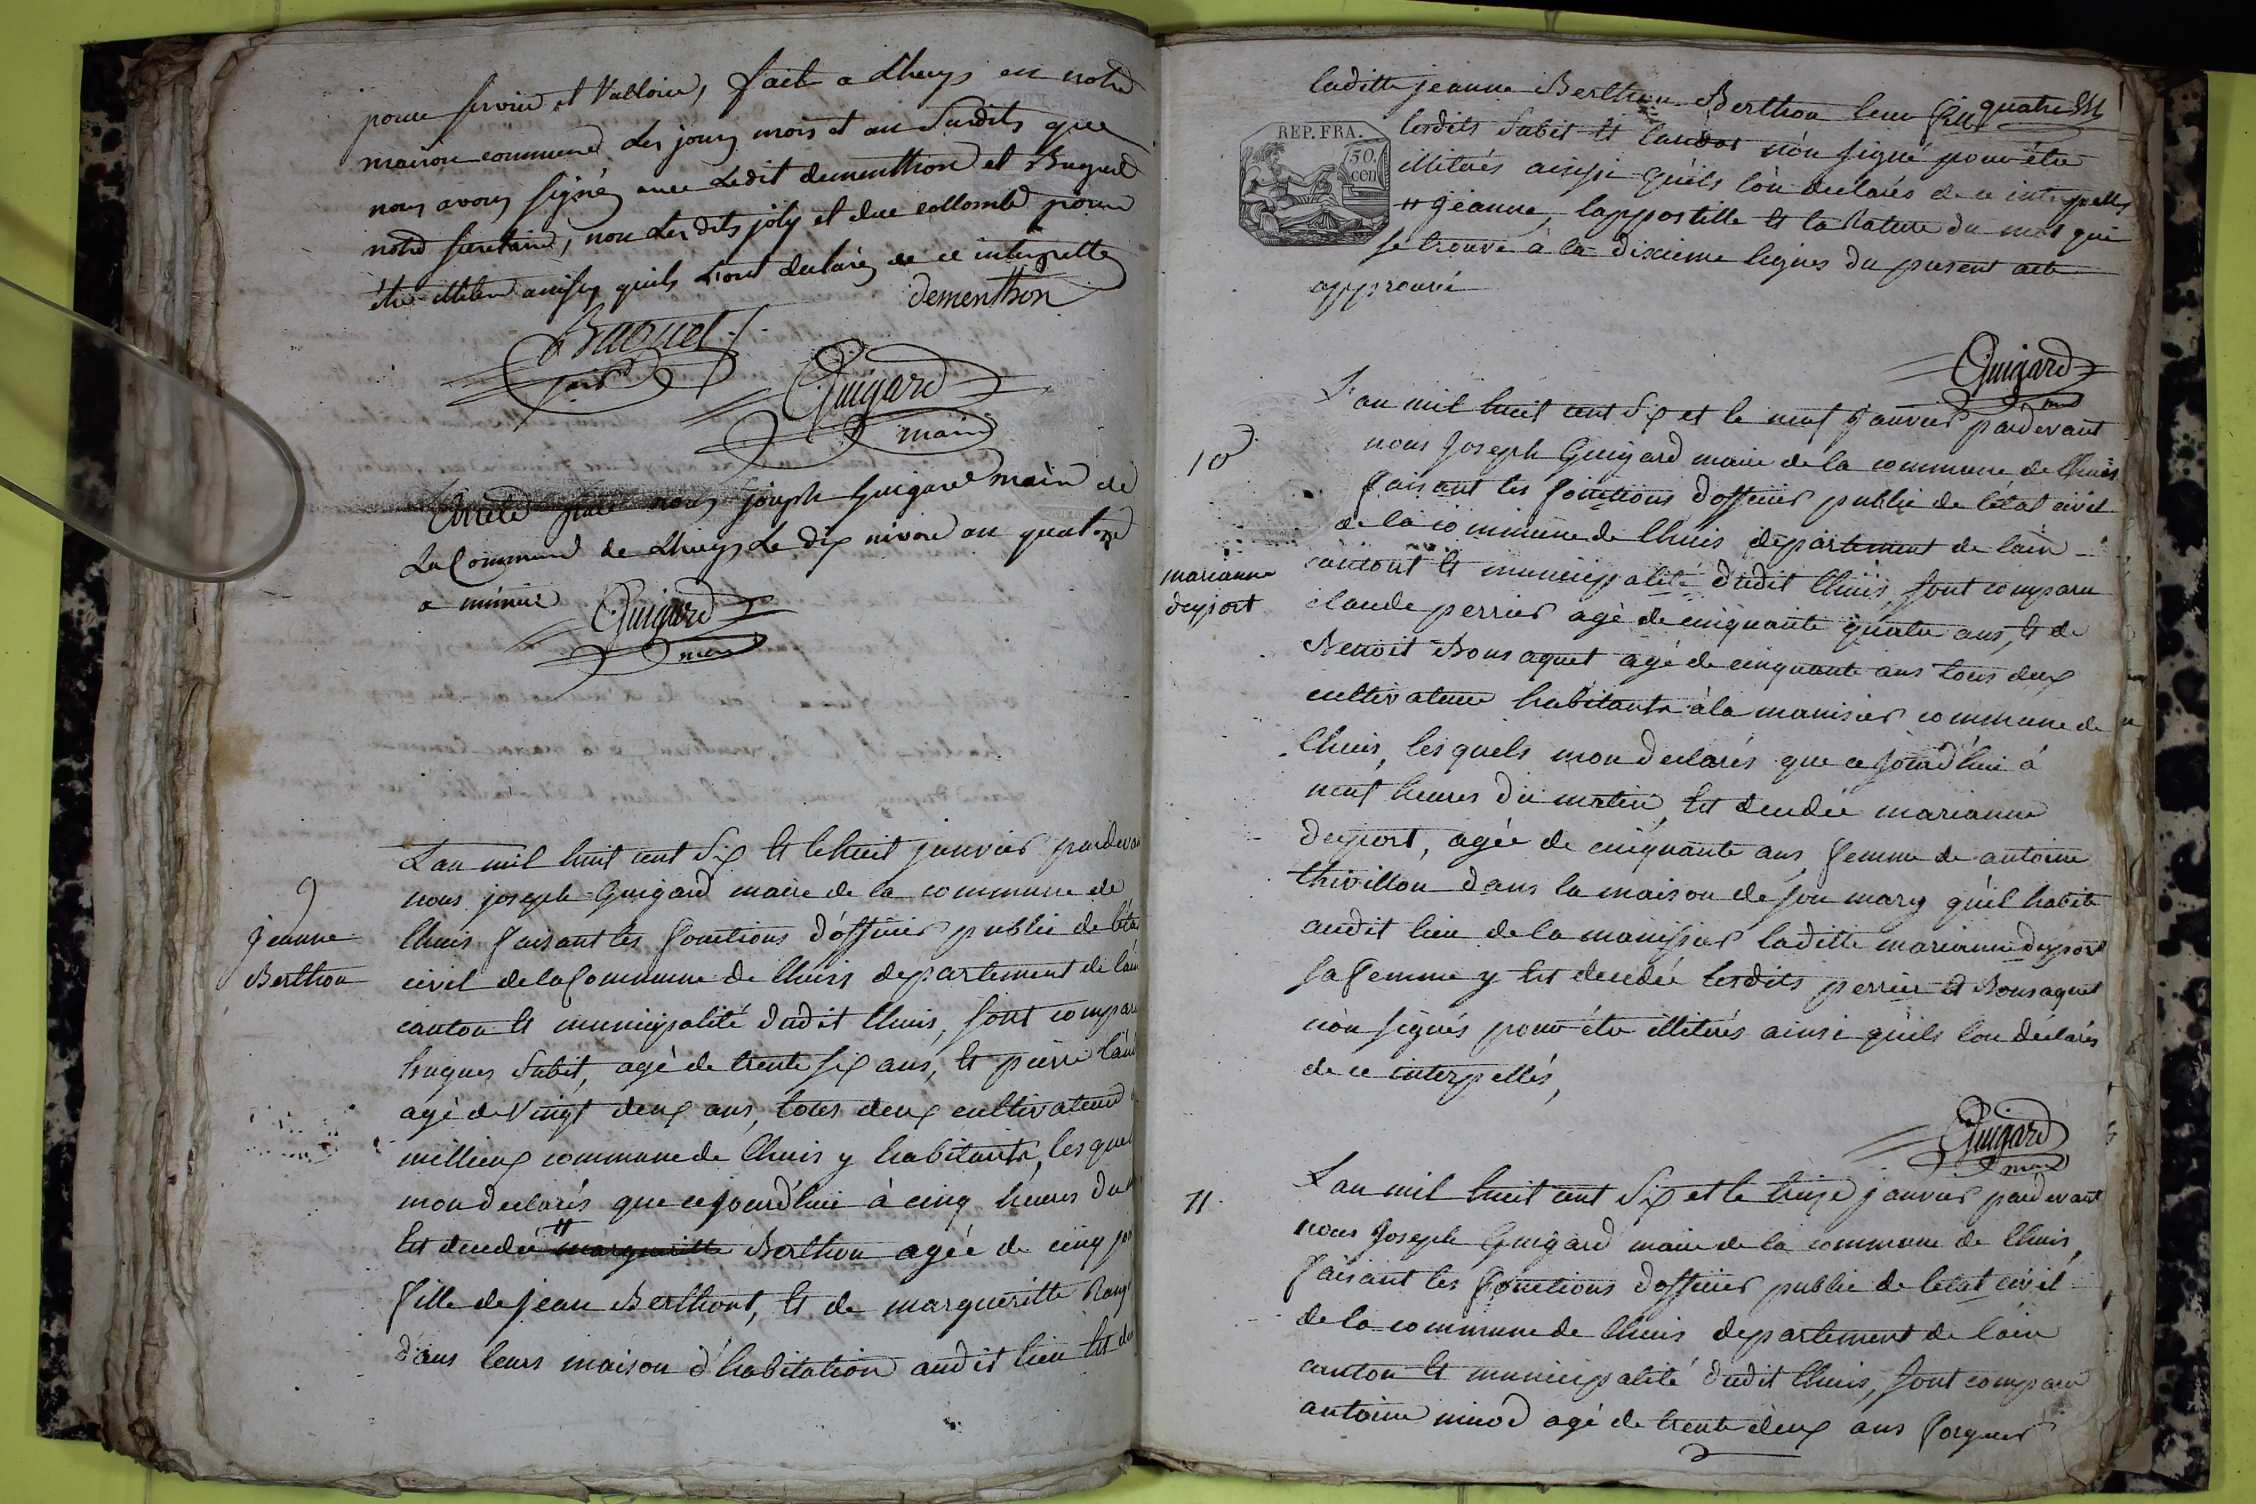 pour servir et Valloir, fait a Lhuys en notre
maison commune Les jours mois et an Susdits que
nous avons signé avec Ledit dementhon et Buquel
notre secretaire, non Les dits joly et duc collomb pour
être illitere ainsy quils L'ont declaré de ce interpelle
dementhon
Guigard
maire
nous joseph Guigard maire de
La Commune de Lhuys Le dix nivose an quatorze
a minuit
Guigard
maire
9
Jeanne
Berthon
L'an mil huit cent Six Et le huit janvier pardevan
nous joseph Guigard maire de la commune de
lhuis faisant les fonctions d'officier public de l'éta
civil de la Commune de lhuis departement de lain
canton Et municipalité dudit lhuis, sont compar
hugues Subit, agé de trente six ans, Et pierre
agé de Vingt deux ans, tous deux cultivateur
millieux commune de lhuis y habitants, les quel
mon declarés que cejourd'hui à cinq heures du
Est decedée # margueritte Berthon agée de cinq jou
fille de jean Berthont, Et de margueritte
dans leurs maison d'habitation audit lieu Est
REP. FRA.
50.
cen
laditte jeanne Berthon Berthon leur fille quatre
lesdits Subit Et non signé pour être
illiterés ainssi quéils lon declarés de ce interpellés
# jéanne, lappostille Et la Rature du mot qui
se trouve à la dixieme lignes du present acte
approuvé
Guigard
10
marianne
deyport
L'an mil huit cent Six et le neuf janvier pardevant
nous Joseph Guigard maire de la commune de lhuis
faisant les fonctions d'officier public de létat civil
de la commune de lhuis département de lain
canton Et municipalité dudit lhuis, sont comparu
claude perrier agé de cinquante quatre ans, Et de
Benoit Bonsaquet agé de cinquante ans tous deux
cultivateur habitants à la manisier commune de
lhuis, les quels mon declarés que ce jourd'hui à
neuf heures du matin, Est decedée marianne
deyport, agée de cinquante ans femme de antoine
thivillon dans la maison de son mary qu'il habite
audit lieu de la manissier laditte marianne deyport
sa femme y Est decedée lesdits perrier Et Bonsaquet
non signés pour être illiterés ainsi quéils lon déclarés
de ce interpellés,
Guigard
maire
11
L'an mil huit cent Six et le treize janvier pardevant
nous Joseph Guigard maire de la commune de lhuis,
faisant les fonctions d'officier public de letat civil
de la commune de lhuis departement de lain
canton Et municipalité dudit lhuis, sont comparu
antoine minod agé de trente deux ans